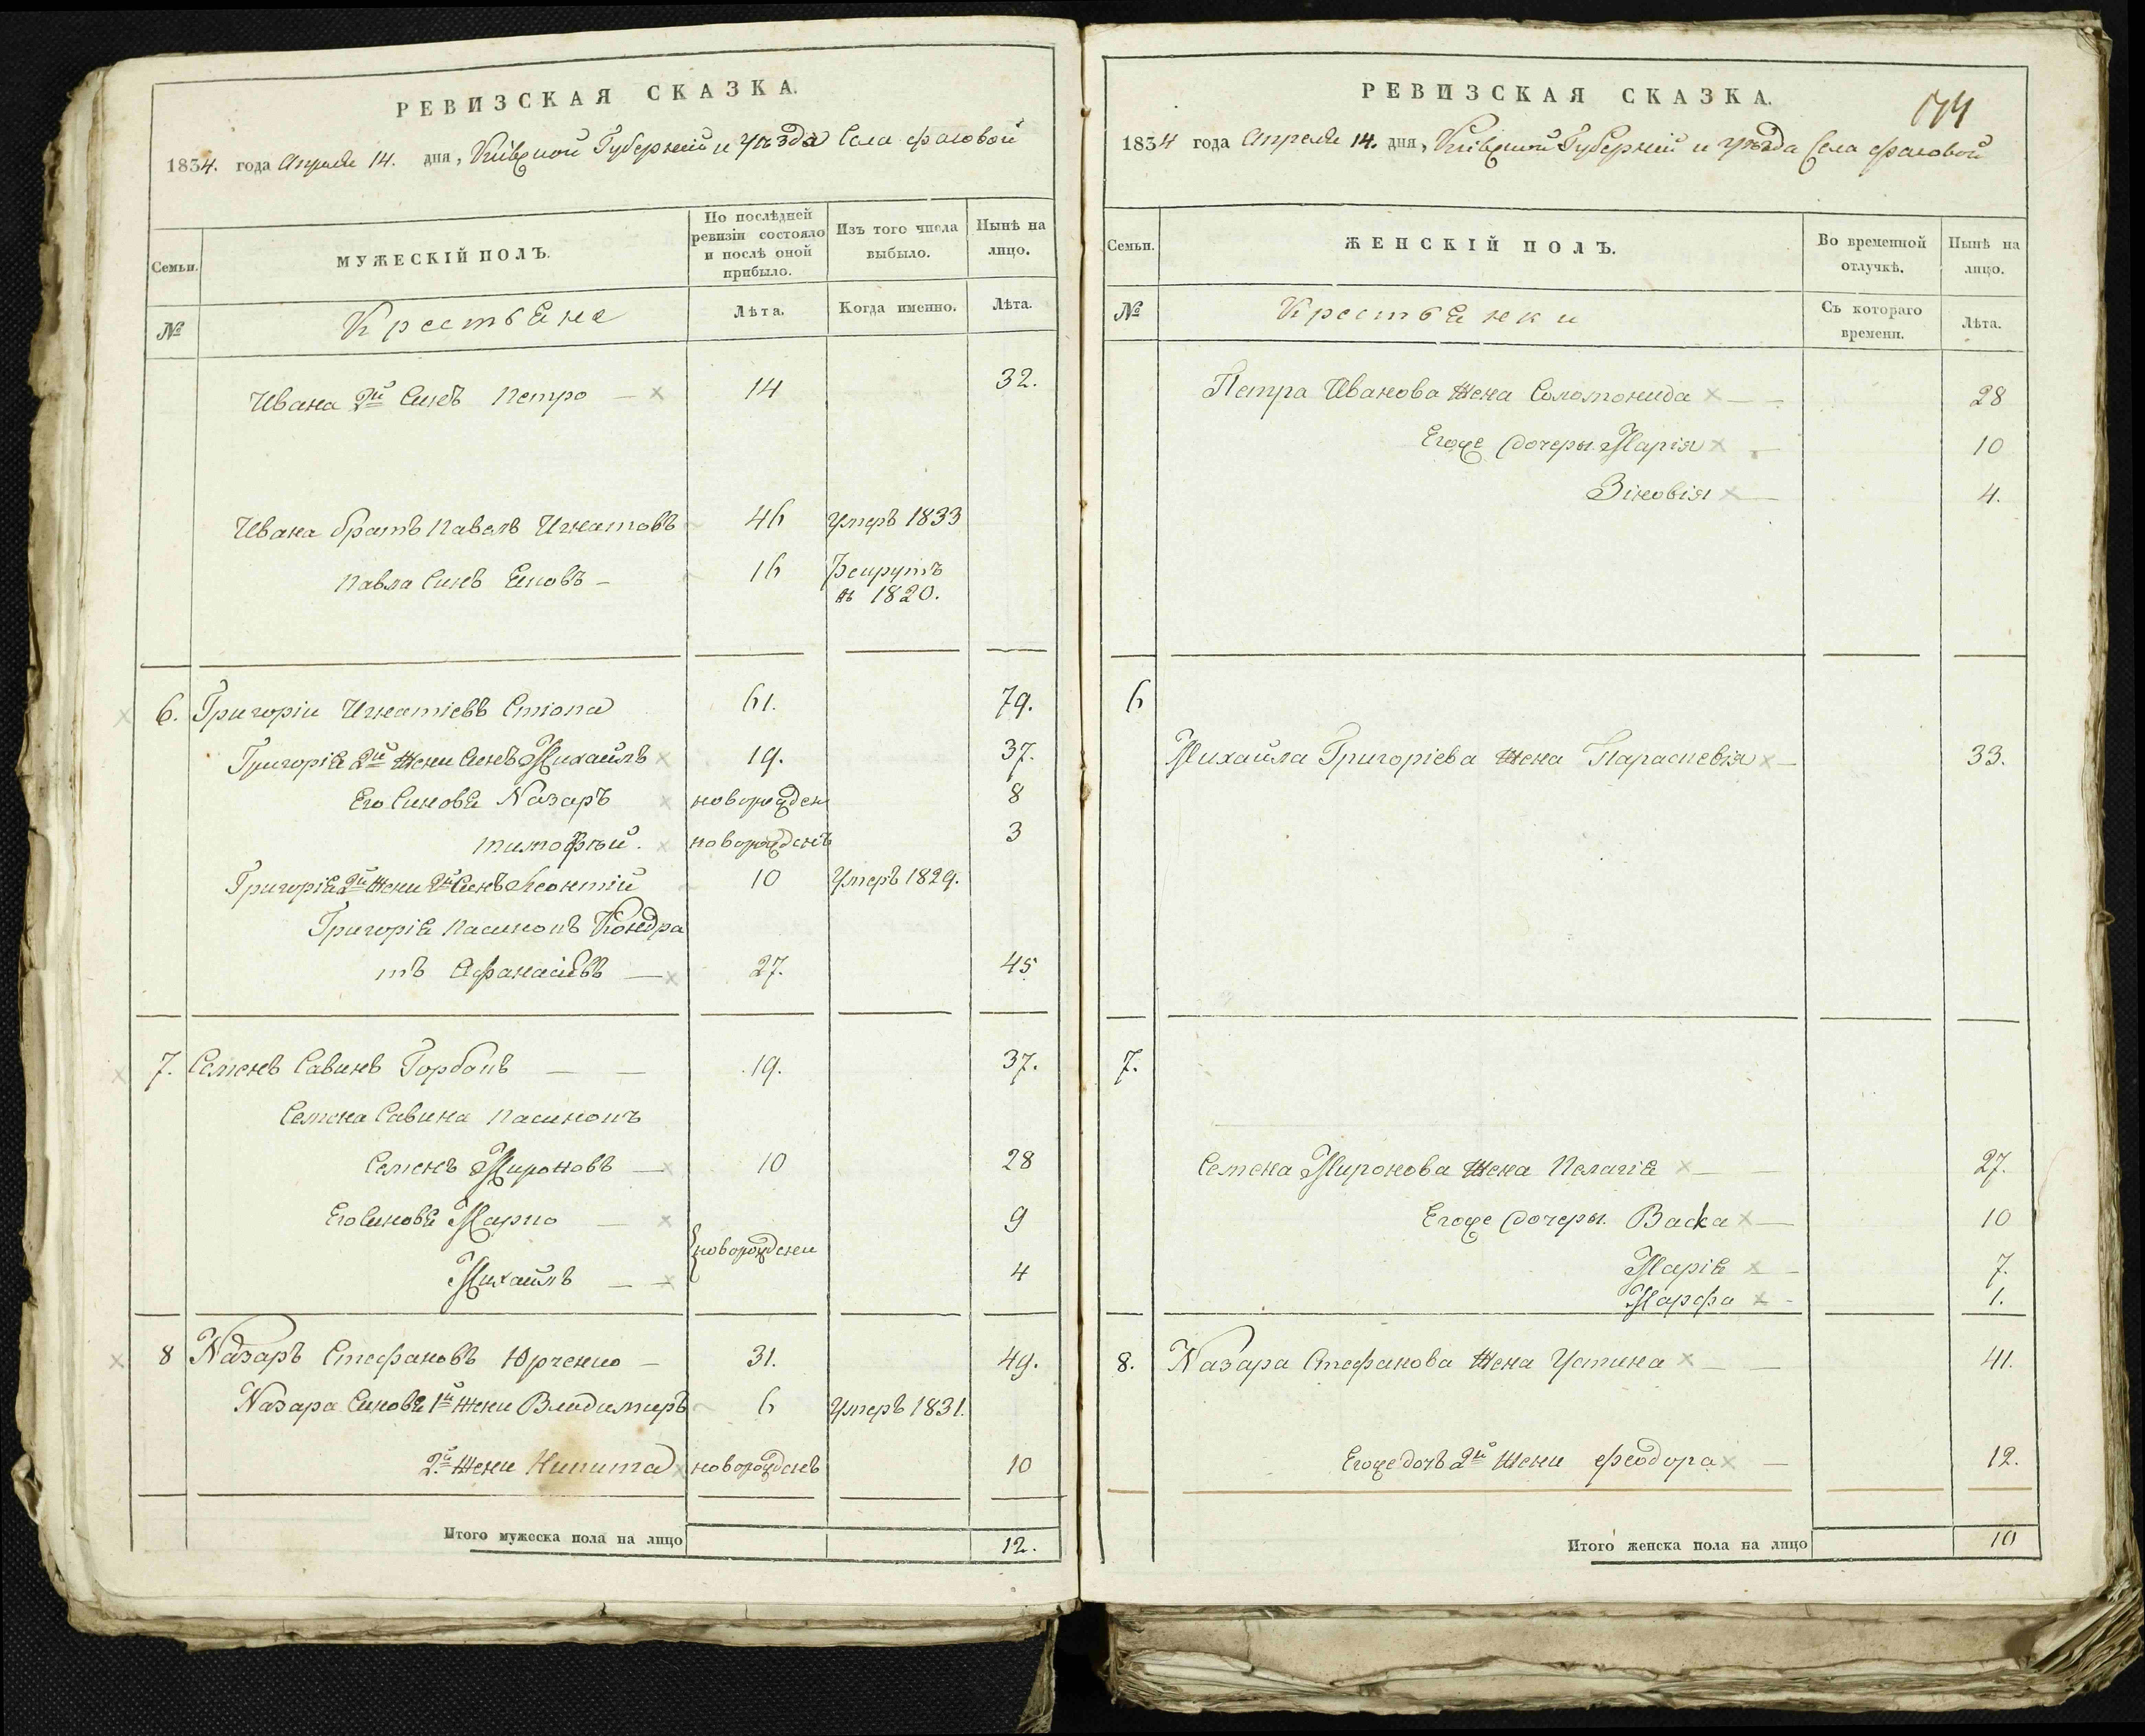 РЕВИЗСКАЯ СКАЗКА.
1834. года Апреля 14. дня, Кіевской Губерніи и уѣзда Села Фасовой
Семьи.
МУЖЕСКІЙ ПОЛЪ.
По послѣдней ревизіи состояло и послѣ оной прибыло.
Изъ того числа выбыло.
Нынѣ на лицо.
№
Крестьяне
Лѣта.
Когда именно.
Лѣта.
Ивана 2й Синъ Петро — 14 32.
Ивана братъ Павелъ Игнатовъ 46 Умеръ 1833
Павла Синъ Яковъ — 16 Рекрутъ
въ 1820.
6. Григорій Игнатіевъ Стіопа 61. 79.
Григорія 2й Жени Синъ Михаилъ 19. 37.
Его Синовя Назаръ новорожден 8
Тимофѣй. новорожденъ 3
Григорія 2й Жени 2й Синъ Леонтій 10 Умеръ 1829.
Григорія Пасинокъ Кондра
тъ Афанасіевъ — 27. 45
7. Семенъ Савинъ Горбань — — 19. 37.
Семена Савина Пасинокъ
Семенъ Мироновъ — 10 28
Его Синовя Марко — 9
новорождени
Михаилъ — — 4
8 Назаръ Стефановъ Юрченко — 31. 49.
Назара Синовя 1й Жени Владимиръ 6 Умеръ 1831.
2й Жени Никита новорожденъ 10
Итого мужеска пола на лицо 12.
РЕВИЗСКАЯ СКАЗКА.
174
1834 года Апреля 14. дня, Кіевской Губерніи и уѣзда Села Фасовой
Семьи.
ЖЕНСКІЙ ПОЛЪ.
Во временной отлучкѣ.
Нынѣ на лицо.
№
Крестьянки
Съ котораго времени.
Лѣта.
Петра Иванова Жена Соломонида — — 28
Егоже Дочеры Марія — 10
Зіновія — 4.
6
Михаила Григоріева Жена Параскевія — 33.
7.
Семена Миронова Жена Пелагія — — 27.
Егоже Дочеры. Васса — 10
Марія — 7.
Марфа - 1.
8. Назара Стефанова Жена Устина — — 41.
Егоже дочъ 2й Жени Феодора — 12.
Итого женска пола на лицо 10